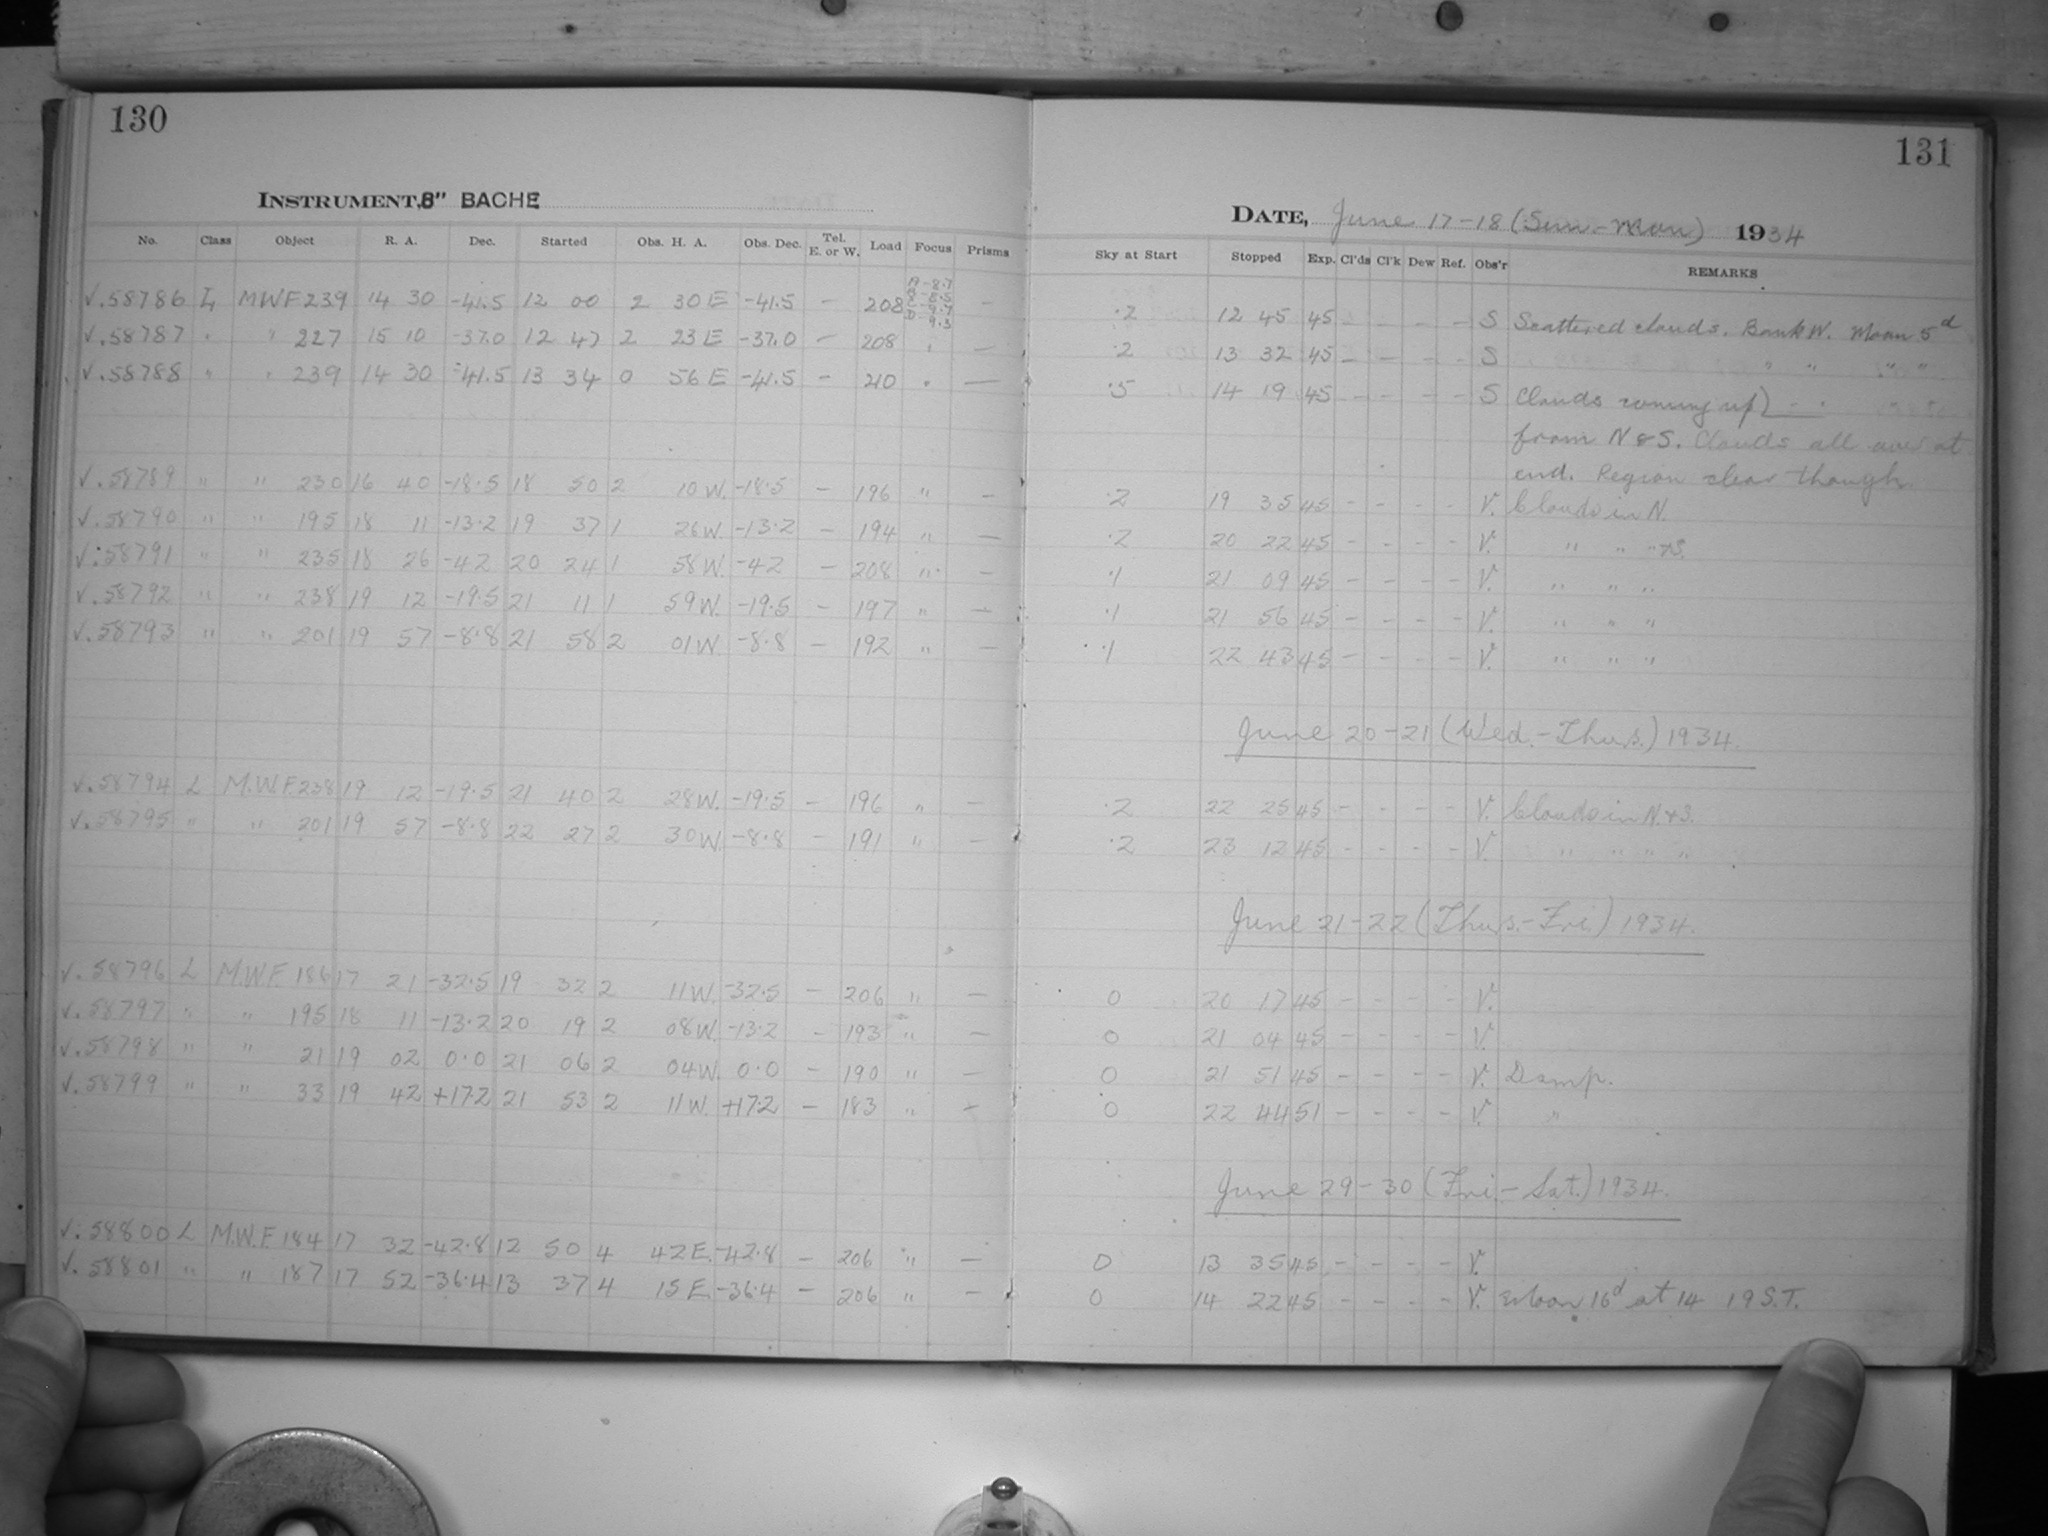 130
INSTRUMENT, 8" BACHE
No. Class Object R. A. Dec. Started Obs. H. A. Obs. Dec. Tel. E. or W. Load Focus Prisms
√.58786 L MWF 239 14 30 -41.5 12 00 2 30 E -41.5 - 208 A-8.7 B-8.5 C-9.7 D-9.3 -
√.58787 " " 227 15 10 -37.0 12 47 2 23 E -37.0 - 208 " -
√.58788 " " 239 14 30 -41.5 13 34 0 56 E -41.5 - 210 " -
√.58789 " " 230 16 40 -18.5 18 50 2 10 W. -18.5 - 196 " -
√.58790 " " 195 18 11 -13.2 19 37 1 26 W. -13.2 - 194 " -
√.58791 " " 235 18 26 -42 20 24 1 58 W. -42 - 208 " -
√.58792 " " 238 19 12 -19.5 21 11 1 59 W. -19.5 - 197 " -
√.58793 " " 201 19 57 -8.8 21 58 2 01 W. -8.8 - 192 " -
√.58794 L M.W.F. 238 19 12 -19.5 21 40 2 28 W. -19.5 - 196 " -
√.58795 " " 201 19 57 -8.8 22 27 2 30 W. -8.8 - 191 " -
√.58796 L M.W.F. 186 17 21 -32.5 19 32 2 11 W. -32.5 - 206 " -
√.58797 " " 195 18 11 -13.2 20 19 2 08 W. -13.2 - 193 " -
√.58798 " " 21 19 02 0.0 21 06 2 04 W. 0.0 - 190 " -
√.58799 " " 33 19 42 +17.2 21 53 2 11 W. +17.2 - 183 " -
√.58800 L M.W.F. 184 17 32 -42.8 12 50 4 42 E. -42.8 - 206 " -
√.58801 " " 187 17 52 -36.4 13 37 4 15 E. -36.4 - 206 " -
131
DATE, June 17-18 (Sun.-Mon) 1934
Sky at Start Stopped Exp. Cl'ds Cl'k Dew Ref. Obs'r REMARKS
.2 12 45 45 - - - - S Scattered clouds. Bank W. Moon 5d
.2 13 32 45 - - - - S " " " "
.5 14 19 45 - - - - S Clouds coming up
from N & S. Clouds all over at
end. Region clear though.
.2 19 35 45 - - - - V. Clouds in N.
.2 20 22 45 - - - - V. " " " +S.
.1 21 09 45 - - - - V. " " "
.1 21 56 45 - - - - V. " " "
.1 22 43 45 - - - - V. " " "
June 20-21 (Wed.-Thurs.) 1934.
.2 22 25 45 - - - - V. Clouds in N.+S.
.2 23 12 45 - - - - V. " " " "
June 21-22 (Thurs.-Fri.) 1934.
0 20 17 45 - - - - V.
0 21 04 45 - - - - V.
0 21 51 45 - - - - V. Damp.
0 22 44 51 - - - - V. "
June 29-30 (Fri.-Sat.) 1934.
0 13 35 45 - - - - V.
0 14 22 45 - - - - V. Moon 16d at 14 19 S.T.